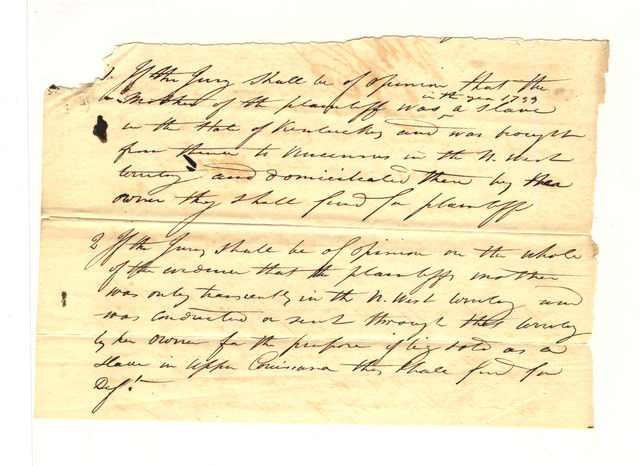 1. If the Jury shall be of opinion that the
in the year 1799
Mother of the plaintiff was a slave
in the State of Kentucky and was brought
from thence to Vincennes in the N. West
territory and domiciliated there by her
owner they shall find for plaintiff
2 If the Jury shall be of opinion on the whole
of the evidence that the plaintiffs mother
was only transiently in the N. West territory and
was conducted or sent through that territory
by her owner for the purpose of being sold as a
slave in upper Louisiana they shall find for
Deft.